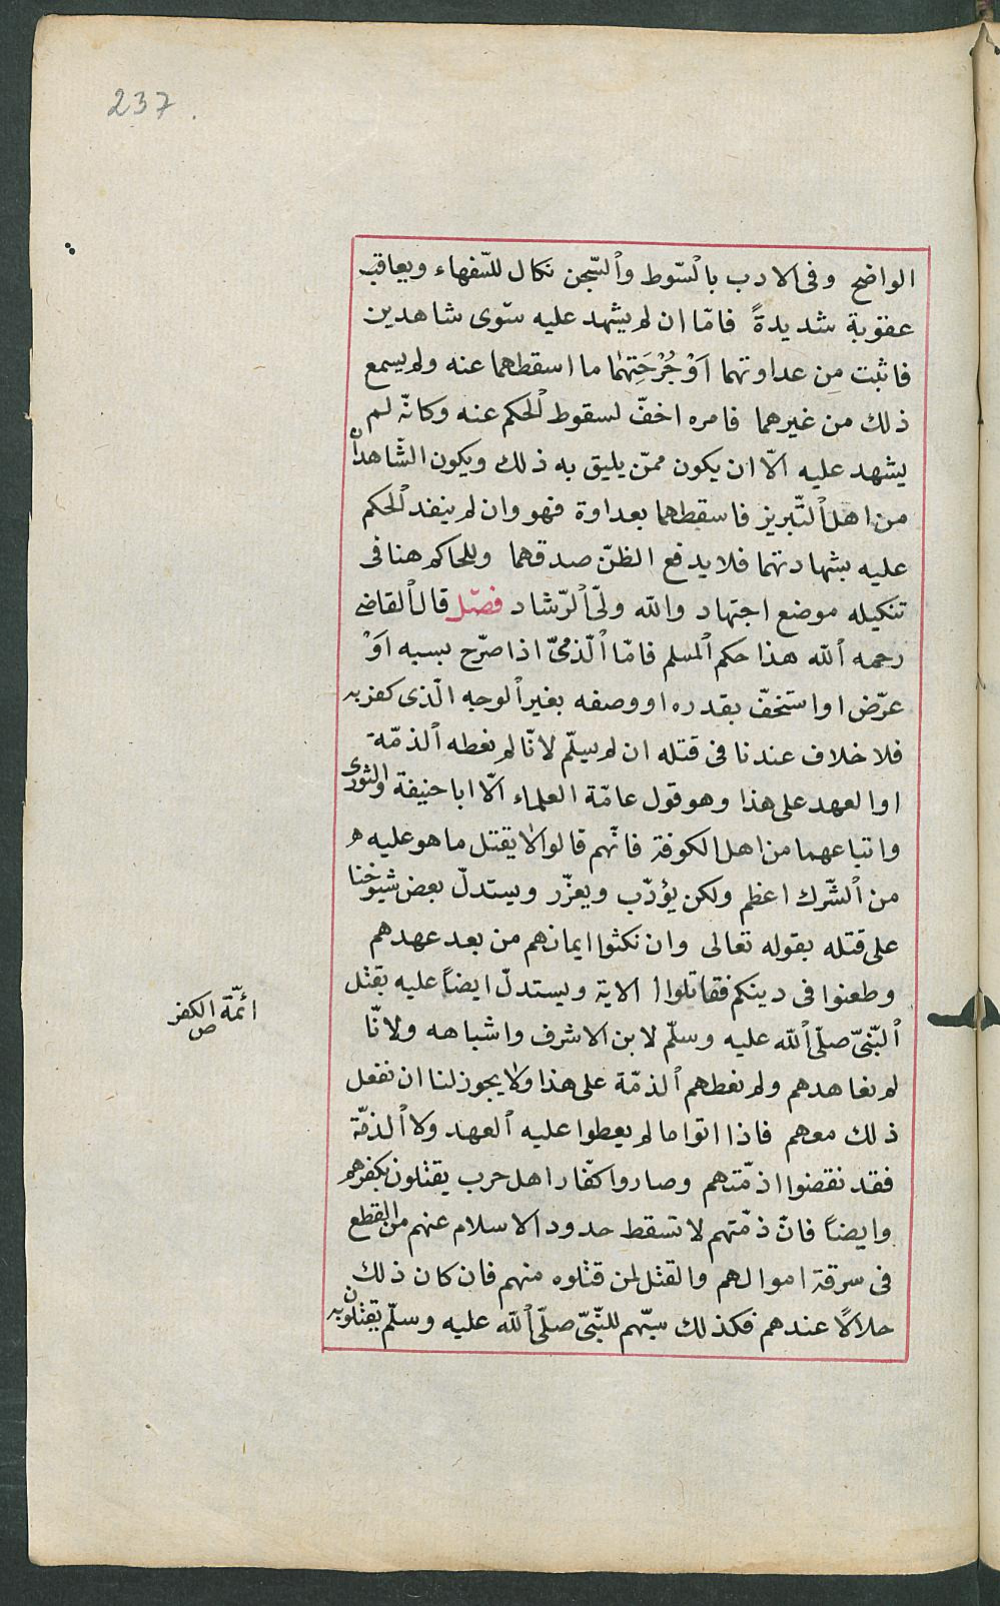 237.
الواضح وفى الادب بالسّوط والسّجن نكال للسّفهاء ويعاقب
عقوبة شديدةً فامّا ان لم يشهد عليه سّوى شاهدين
فاثبت من عداوتهما اَوْ جُرْحَتِهٰما ما اسقطهما عنه ولم يسمع
ذلك من غيرهما فامره اخفّ لسقوط الحكم عنه وكانّه لم
يشهد عليه الّا ان يكون ممّن يليق به ذلك ويكون الشّاهدان
من اهل التّبريز فاسقطهما بعداوة فهو وان لم ينفد الحكم
عليه بشهادتهما فلا يدفع الظنّ صدقهما وللحاكم هنا فى
تنكيله موضع اجتهاد والله ولىّ الرّشاد فصّل قال القاضى
رحمه الله هذا حكم المسلم فامّا الّذمىّ اذا صرّح بسبه اَوْ
عرّض او استخفّ بقدره او وصفه بغير الوجه الّذى كفر به
فلا خلاف عندنا فى قتله ان لم يسلّم لانّا لم نعطه الذمّة
او العهد على هذا وهو قول عامّة العلماء الّا ابا حنيفة والثورى
واتباعهما من اهل الكوفة فانّهم قالوا لا يقتل ما هو عليه ه
من الشّرك اعظم ولكن يؤدّب ويعزّر ويستدلّ بعض شيوخنا
على قتله بقوله تعالى وان نكثوا ايمانهم من بعد عهدهم
وطعنوا فى دينكم فقاتلوا الاية ويستدلّ ايضاً عليه بقتل
النّبىّ صلّى الله عليه وسلّم لابن الاشرف واشباهه ولانّا
ائمّة الكفر
ص
لم نعاهدهم ولم نعطهم الذمّة على هذا ولا يجوز لنا ان نفعل
ذلك معهم فاذا اتوا ما لم يعطوا عليه العهد ولا الذمّة
فقد نقضوا اذمّتهم وصاروا كفّارا اهل حرب يقتلون بكفرهم
وايضاً فانّ ذمّتهم لا تسقط حدود الاسلام عنهم من القطع
فى سرقة اموالهم والقتل لمن قتلوه منهم فان كان ذلك
حلالاً عندهم فكذلك سبّهم للنّبىّ صلّى الله عليه وسلّم يقتلون به